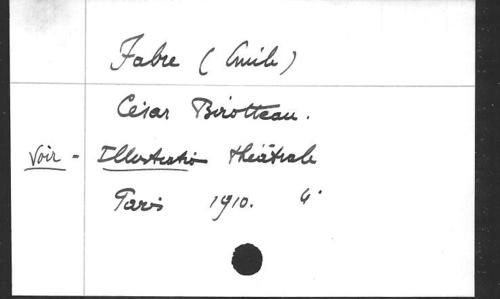 Fabre (Emile)
César Birotteau.
Voir - Illustratio théâtrale
Paris 1910. 4°